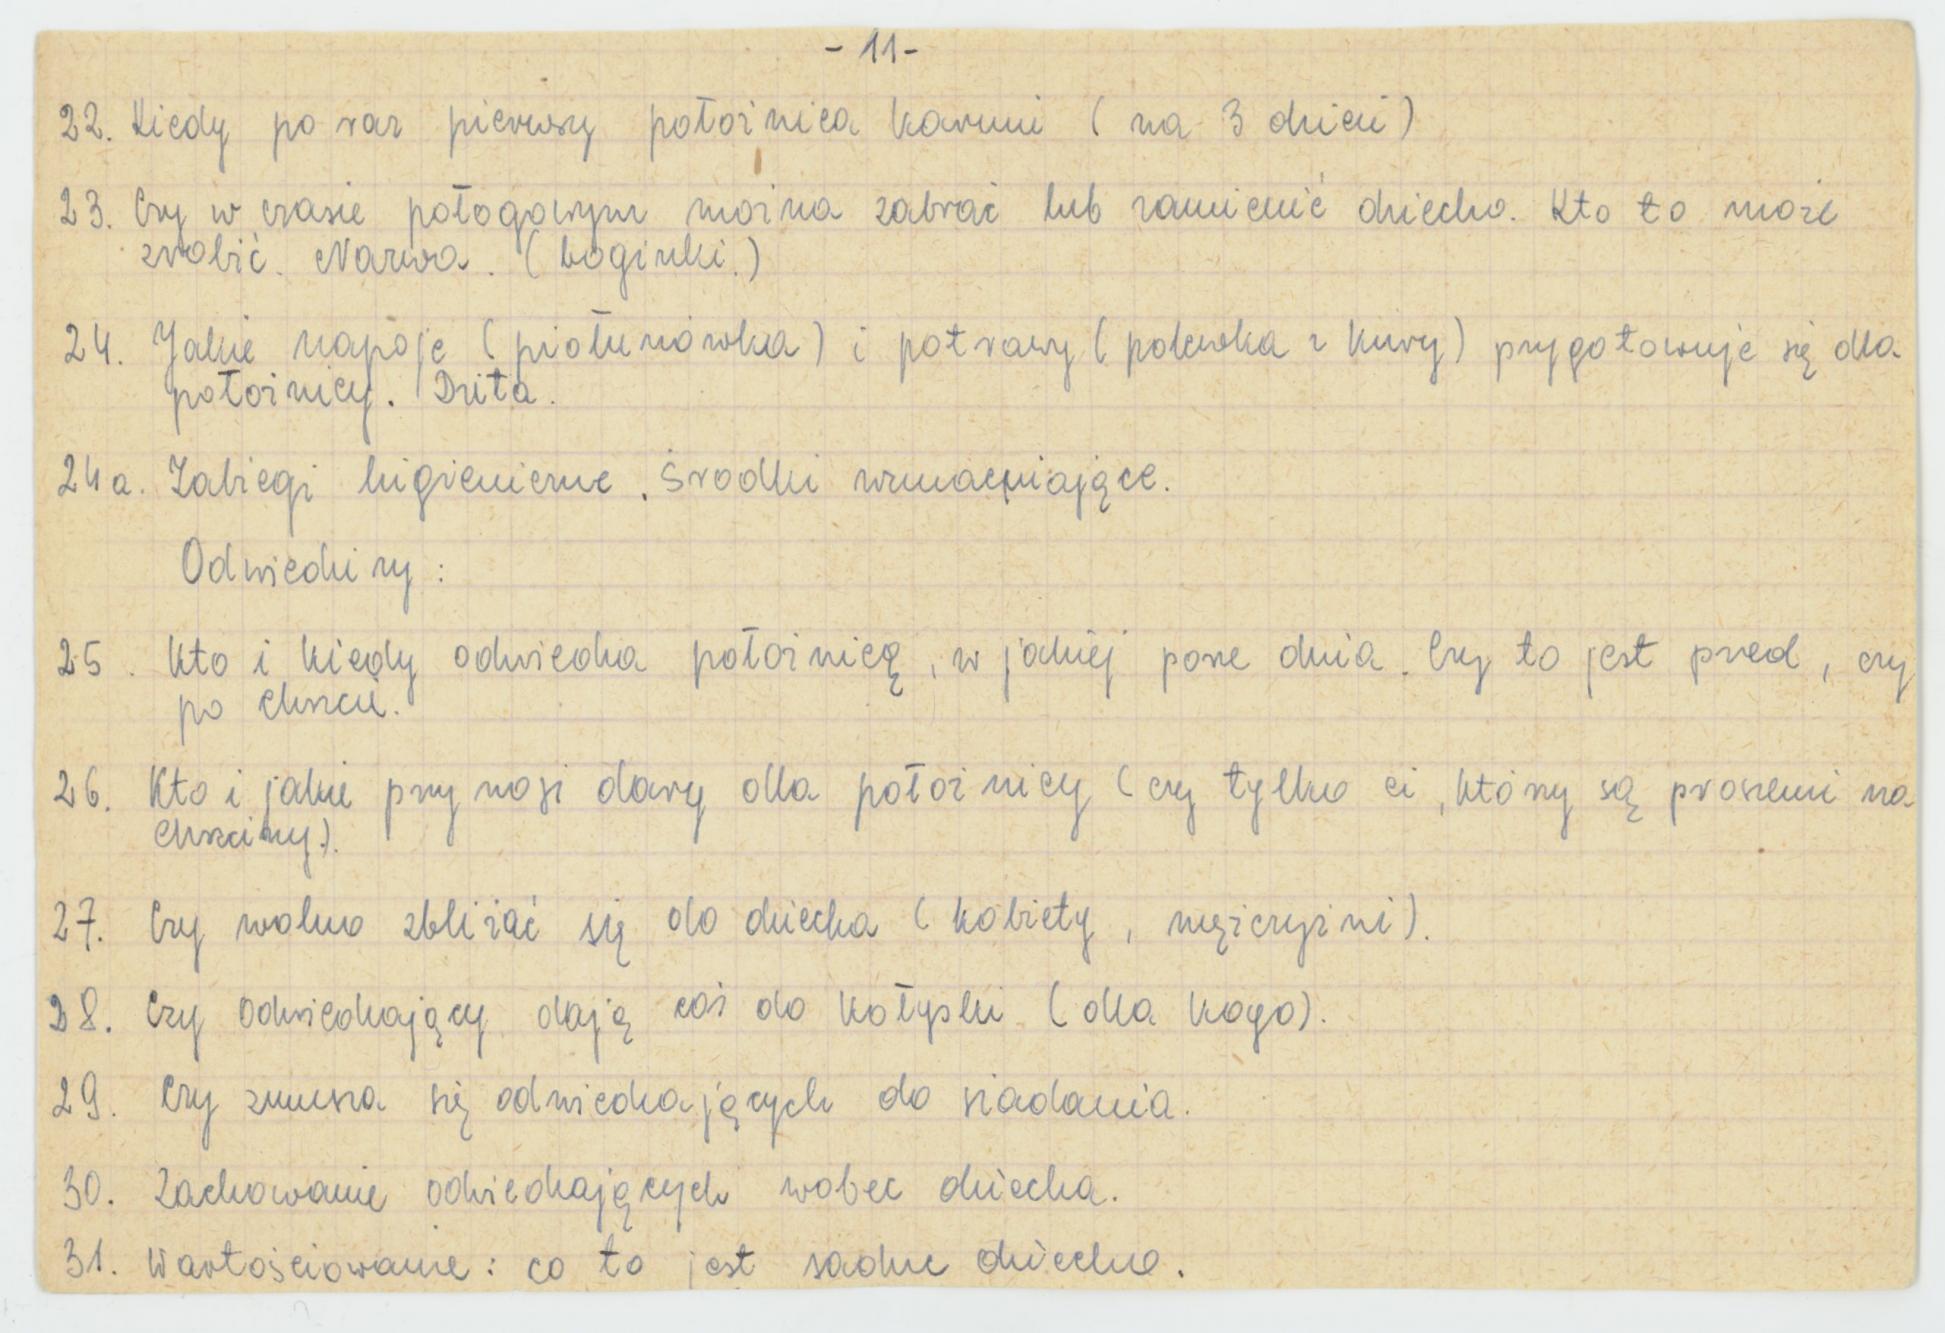 - 11 -
22. Kiedy po raz pierwszy położnica karmi ( na 3 dzień )
23. Czy w czasie połogowym można zabrać lub zamienić dziecko. Kto to może
zrobić. Nazwa. ( boginki.)
24. Jakie napoje ( piołunówka ) i potrawy ( polewka z kury ) przygotowuje się dla
położnicy. Dzita.
24a. Zabiegi higieniczne. Środki wzmacniające.
Odwiedziny :
25. Kto i kiedy odwiedza położnicę, w jakiej porze dnia. Czy to jest przed, czy
po chrzcie.
26. Kto i jakie przynosi dary dla położnicy ( czy tylko ci, którzy są proszeni na
chrzciny).
27. Czy wolno zbliżać się do dziecka ( kobiety, mężczyźni ).
28. Czy odwiedzający dają coś do kołyski ( dla kogo).
29. Czy zmusza się odwiedzających do siadania.
30. Zachowanie odwiedzających wobec dziecka.
31. Wartościowanie : co to jest ładne dziecko.